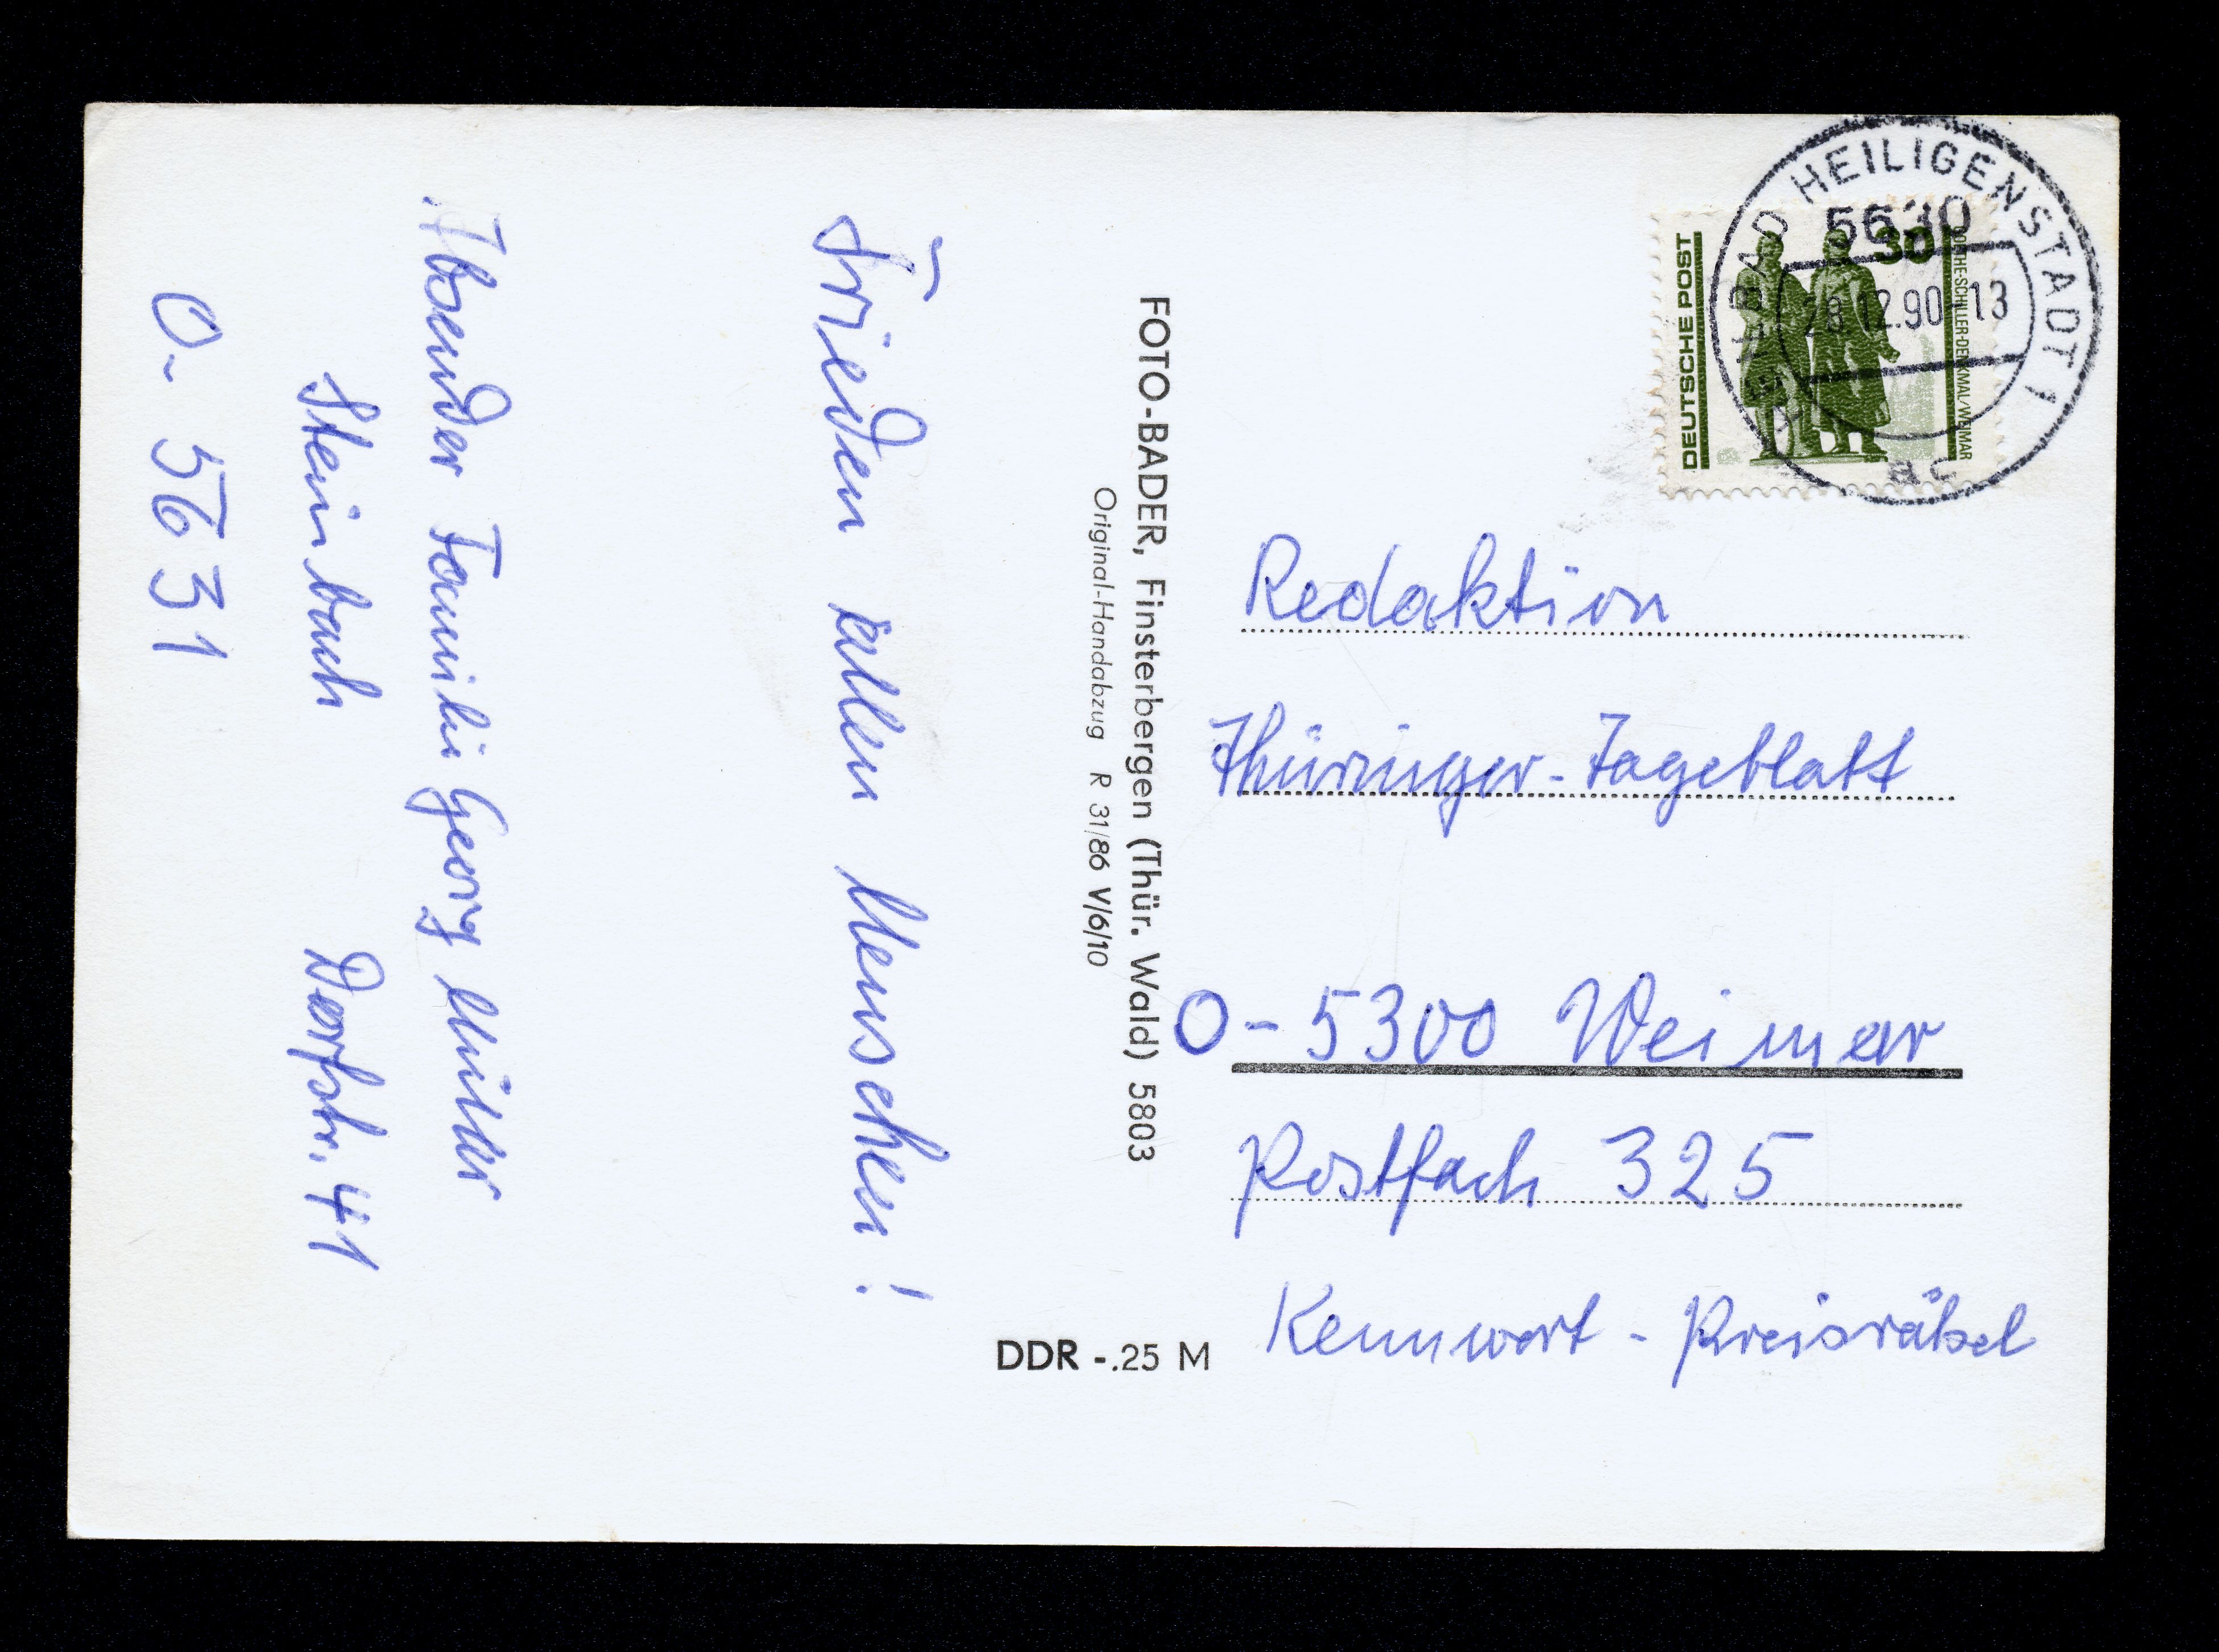 Frieden allen Menschen!
Absender Familie Georg Müller
Steinbach Dorfstr. 41
O-5631
FOTO-BADER, Finsterbergen (Thür. Wald) 5803
Original-Handabzug R 31/86 V/6/10
DDR -.25 M
HEILBAD HEILIGENSTADT 1
5630
28.12.90-13
ac
DEUTSCHE POST
30
GOETHE-SCHILLER-DENKMAL/WEIMAR
Redaktion
Thüringer-Tageblatt
O-5300 Weimar
Postfach 325
Kennwort - Preisrätsel